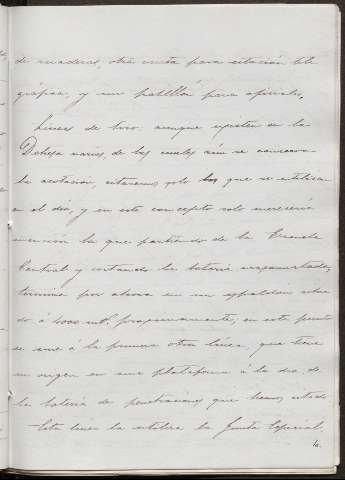 de maderas, otra caseta para estación tele
gráfica, y un pabellón para oficiales.
Lineas de tiro: aunque existen en la
Dehesa varias, de las cuales aún se conserva
la acotación, citaremos solo las que se utilizan
en el día, y en este concepto solo merecería
mención la que partiendo de la Escuela
Central y cortando la batería
termina por ahora en un espaldón situa
do á 4000 mts. proximamente, en este punto
se une á la primera otra línea, que tiene
su origen en una plataforma á la dra. de
la batería de penetraciones que hemos citado
Esta línea la utiliza la Junta Especial